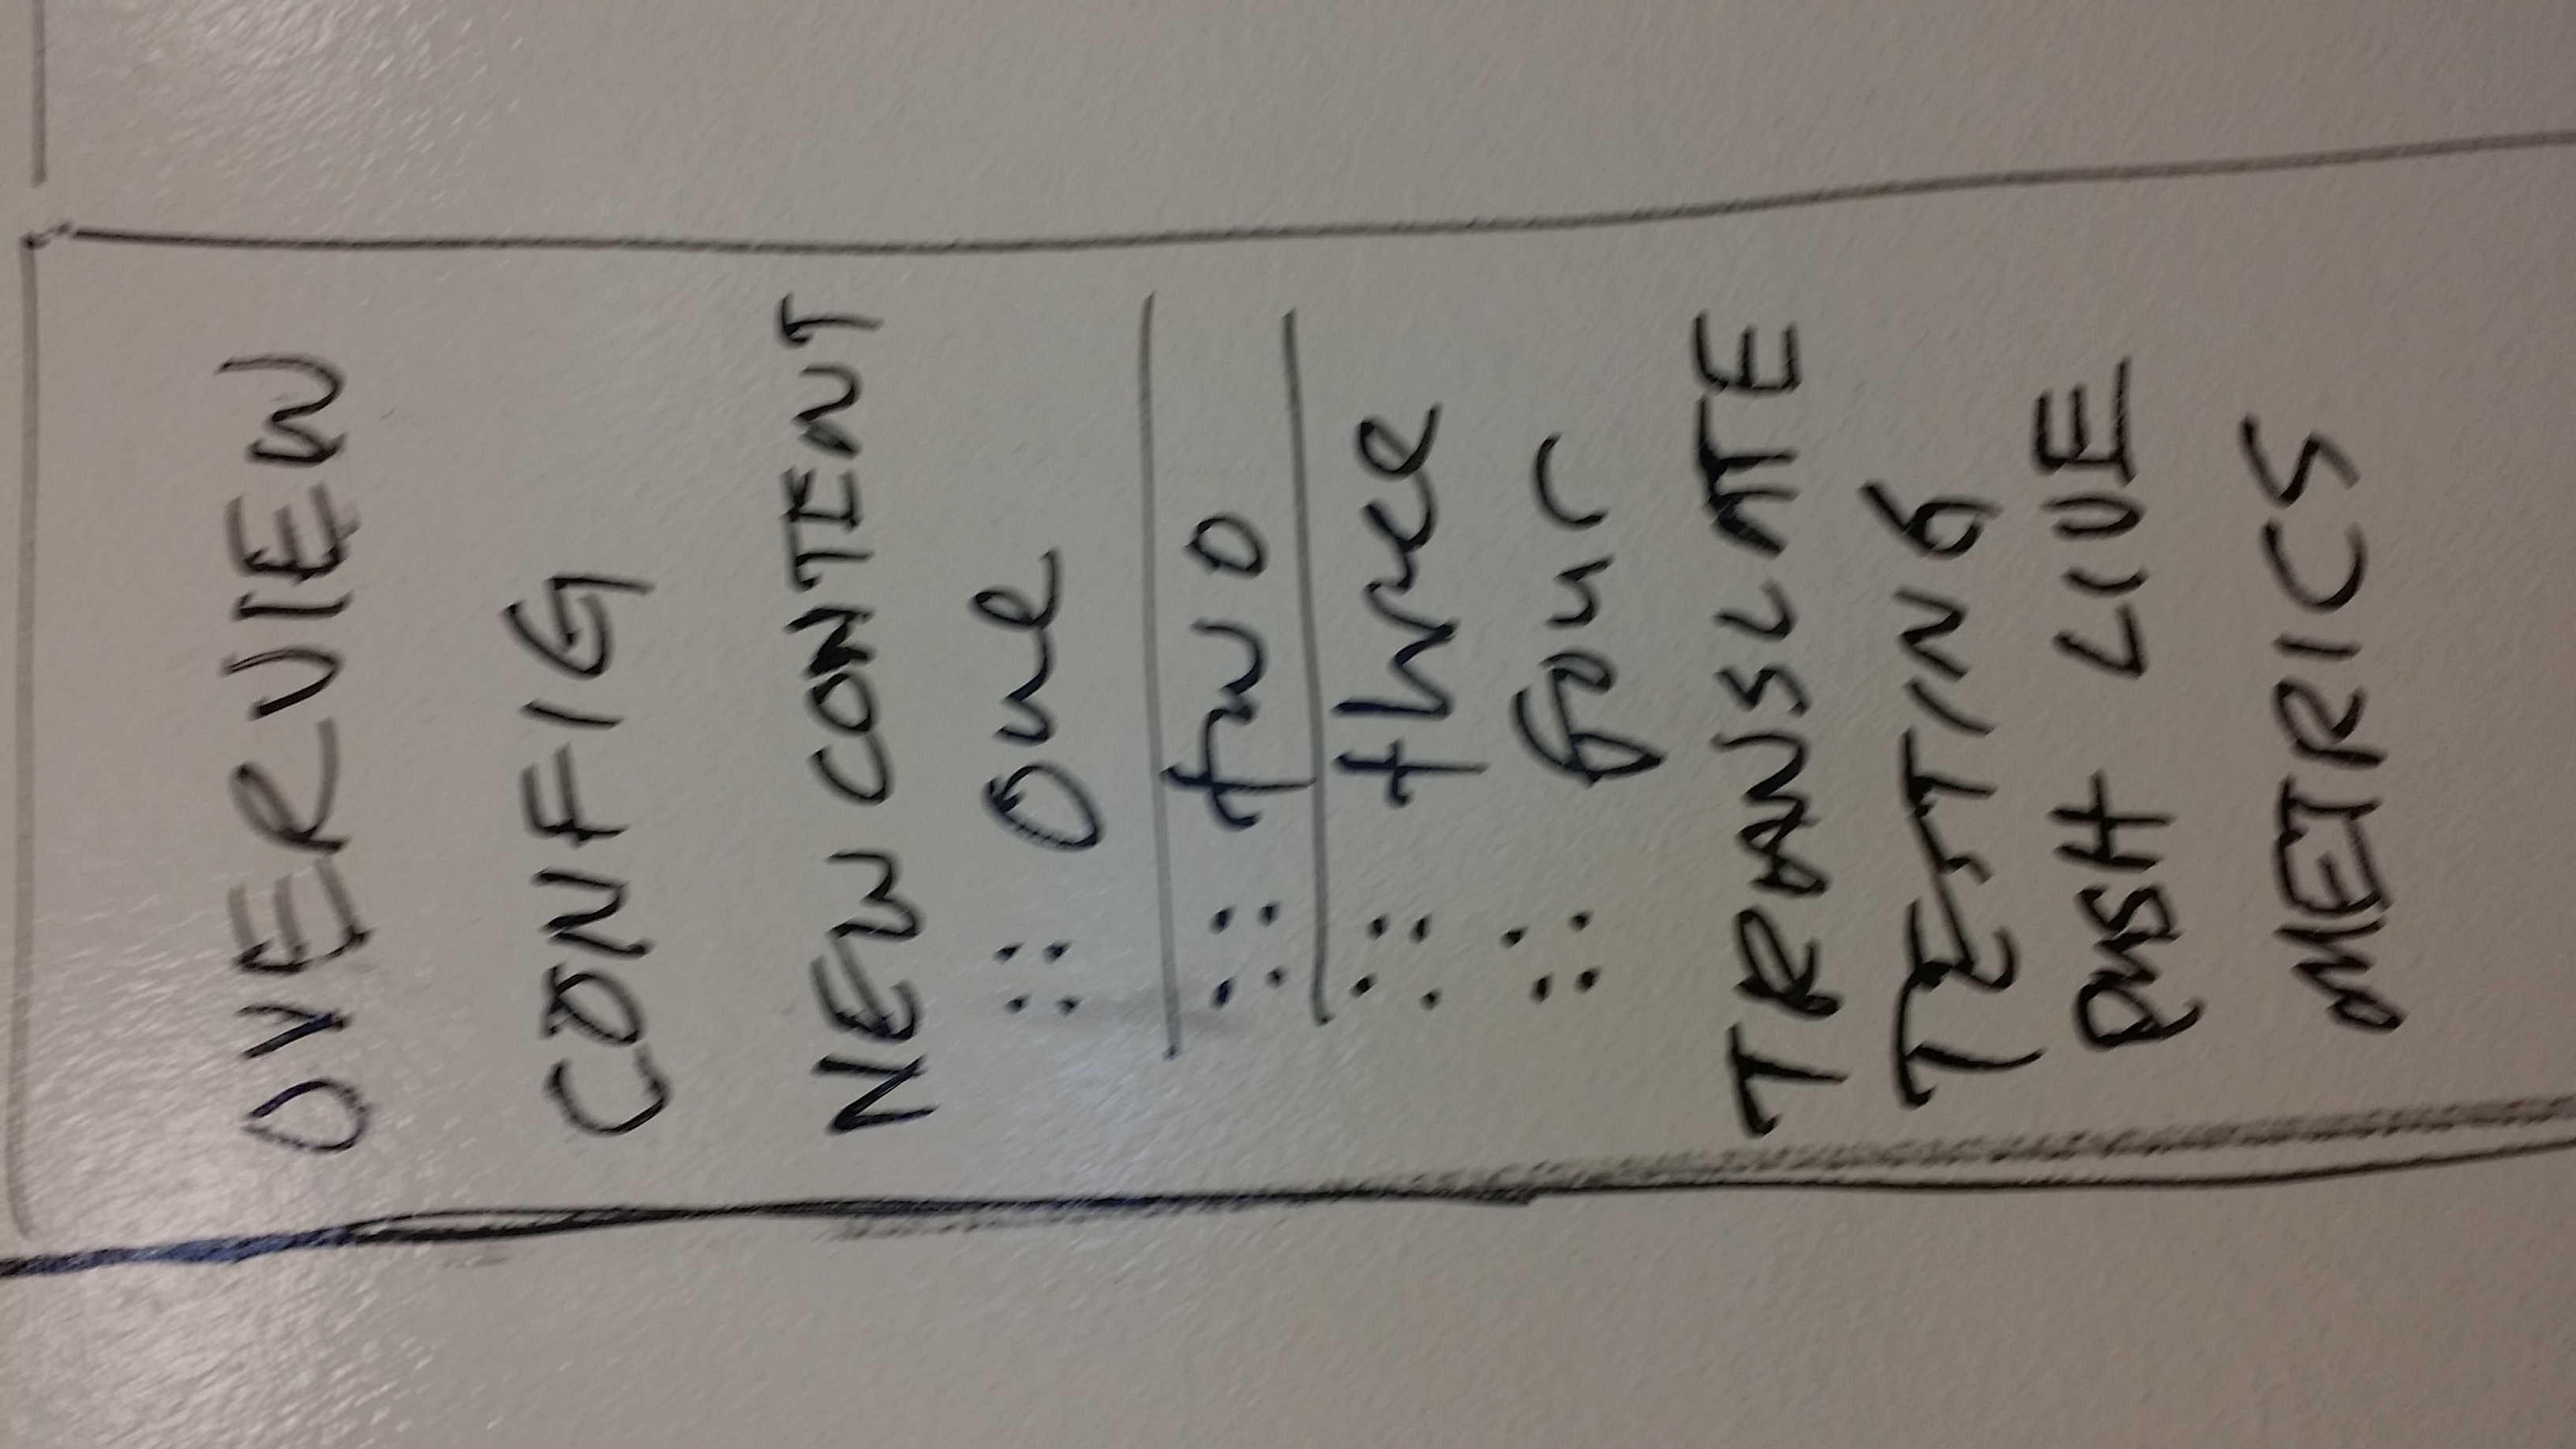 OVERVIEW
CONFIG
NEW CONTENT
:: One
:: two
:: three
:: four
TRANSLATE
TESTING
PUSH LIVE
METRICS